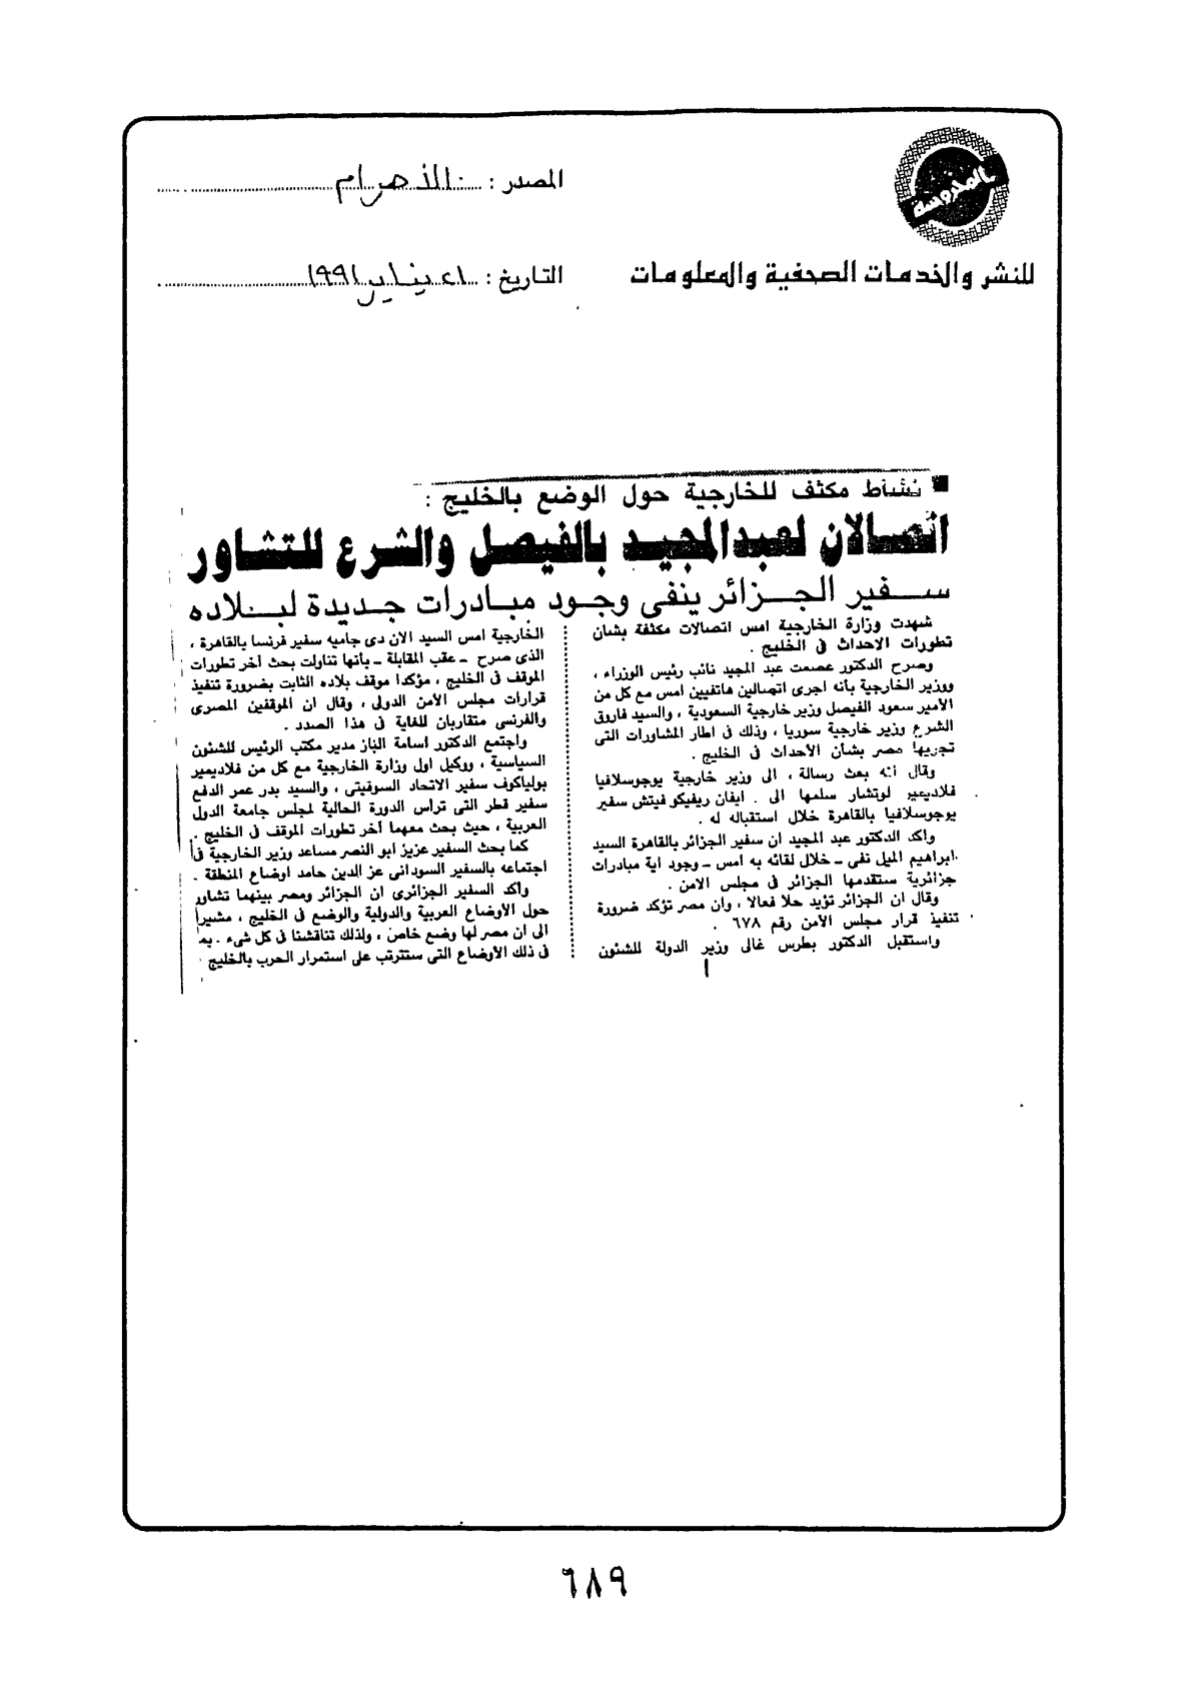 المحروسة
للنشر والخدمات الصحفية والمعلومات
المصدر : الأهرام
التاريخ : ٢١ يناير ١٩٩١
■ نشاط مكثف للخارجية حول الوضع بالخليج :
اتصالان لعبدالمجيد بالفيصل والشرع للتشاور
سفير الجزائر ينفى وجود مبادرات جديدة لبلاده
شهدت وزارة الخارجية امس اتصالات مكثفة بشان
تطورات الاحداث فى الخليج .
وصرح الدكتور عصمت عبد المجيد نائب رئيس الوزراء ،
ووزير الخارجية بأنه اجرى اتصالين هاتفيين امس مع كل من
الأمير سعود الفيصل وزير خارجية السعودية ، والسيد فاروق
الشرع وزير خارجية سوريا ، وذلك فى اطار المشاورات التى
تجريها مصر بشأن الأحداث فى الخليج .
وقال انه بعث رسالة ، الى وزير خارجية يوجوسلافيا
فلاديمير لوتشار سلمها الى . ايفان ريفيكو فيتش سفير
يوجوسلافيا بالقاهرة خلال استقباله له .
واكد الدكتور عبد المجيد ان سفير الجزائر بالقاهرة السيد
ابراهيم الميل نفى - خلال لقائه به امس - وجود اية مبادرات
جزائرية ستقدمها الجزائر فى مجلس الامن .
وقال ان الجزائر تؤيد حلا فعالا ، وان مصر تؤكد ضرورة
تنفيذ قرار مجلس الأمن رقم ٦٧٨ .
واستقبل الدكتور بطرس غالى وزير الدولة للشئون
الخارجية امس السيد الان دى جاميه سفير فرنسا بالقاهرة ،
الذى صرح - عقب المقابلة - بأنها تناولت بحث آخر تطورات
الموقف فى الخليج ، مؤكدا موقف بلاده الثابت بضرورة تنفيذ
قرارات مجلس الأمن الدولى ، وقال ان الموقفين المصرى
والفرنسى متقاربان للغاية فى هذا الصدد .
واجتمع الدكتور اسامة الباز مدير مكتب الرئيس للشئون
السياسية ، ووكيل اول وزارة الخارجية مع كل من فلاديمير
بولياكوف سفير الاتحاد السوفيتى ، والسيد بدر عمر الدفع
سفير قطر التى ترأس الدورة الحالية لمجلس جامعة الدول
العربية ، حيث بحث معهما آخر تطورات الموقف فى الخليج .
كما بحث السفير عزيز ابو النصر مساعد وزير الخارجية فى
اجتماعه بالسفير السودانى عز الدين حامد اوضاع المنطقة .
وأكد السفير الجزائرى ان الجزائر ومصر بينهما تشاور
حول الأوضاع العربية والدولية والوضع فى الخليج ، مشيرا
الى ان مصر لها وضع خاص ، ولذلك تناقشنا فى كل شىء . بما
فى ذلك الأوضاع التى ستترتب على استمرار الحرب بالخليج .
٦٨٩